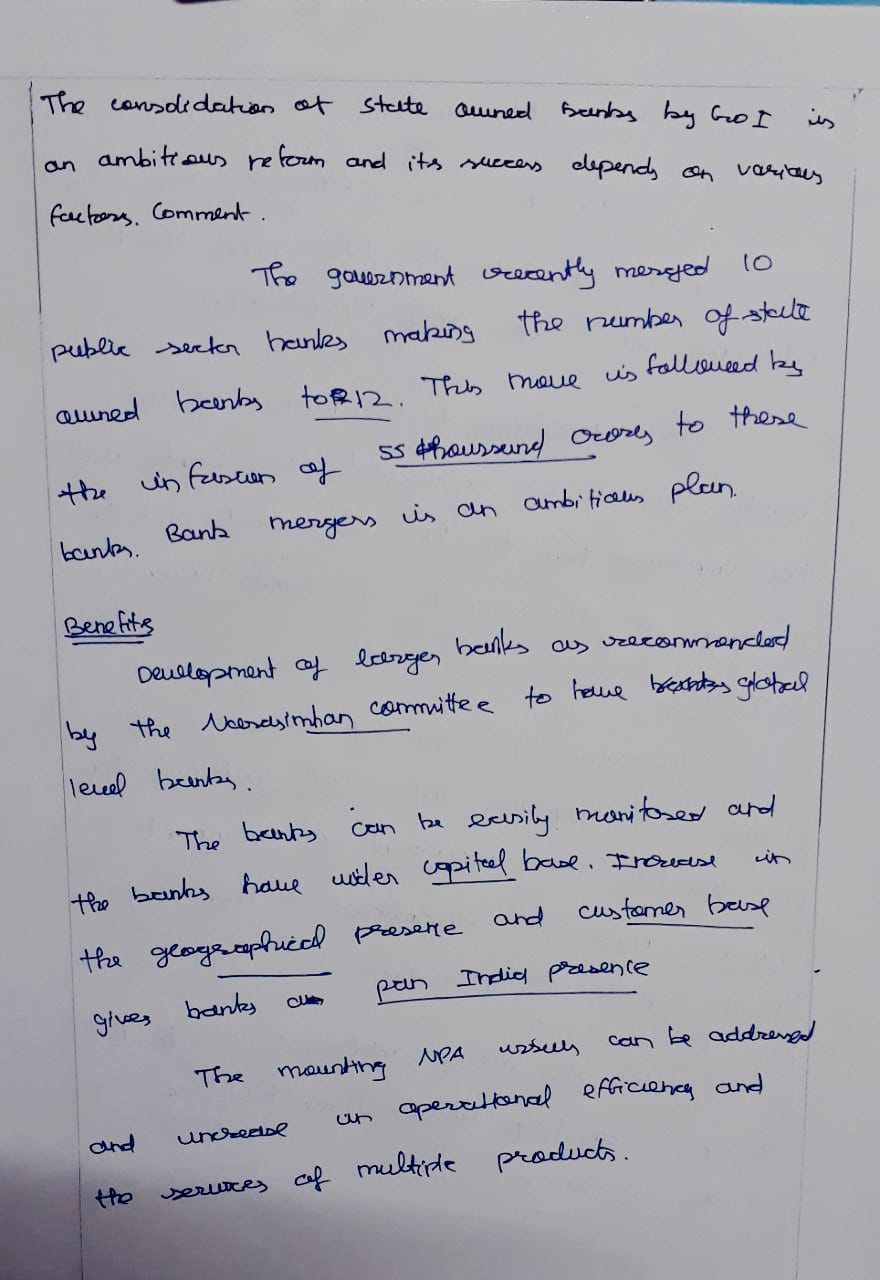 The consolidation of state owned banks by GoI is
an ambitious reform and its success depends on various
factors. Comment.
The government recently merged 10
public sector banks making the number of state
owned banks to 12. This move is followed by
the infusion of 55 thoussand crores to these
banks. Bank mergers is an ambitious plan.
Benefits
Development of larger banks as recommended
by the Narasimhan committee to have global
level banks.
The banks can be easily monitored and
the banks have wider capital base. Increase in
the geographical presence and customer base
gives banks a pan India presence
The mounting NPA issues can be addressed
and increase in operational efficiency and
the services of multiple products.